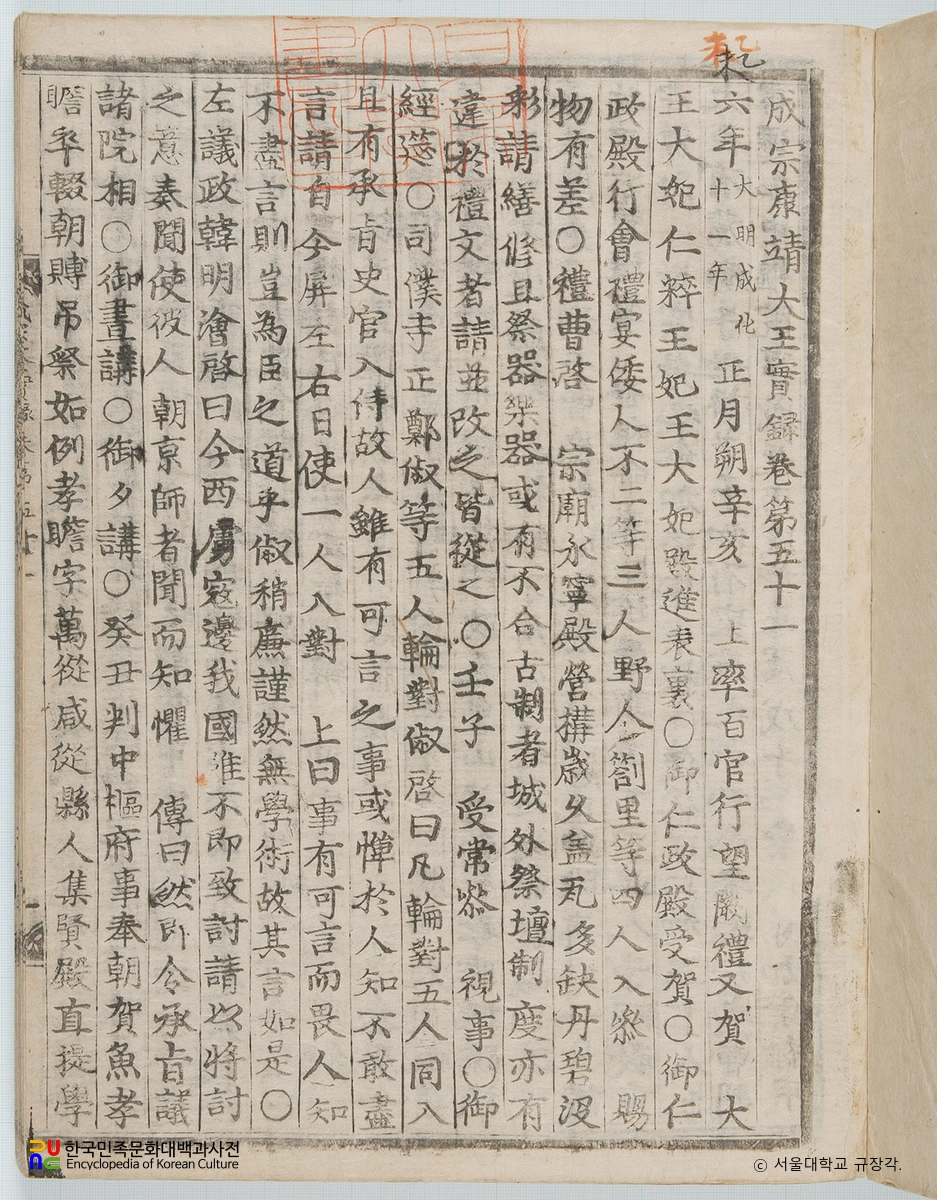 成宗康靖大王實錄卷第五十一
乙未
六年大明成化十一年正月朔辛亥 上率百官行望闕禮又賀 大
王大妃仁粹王妃王大妃殿進表裏○御仁政殿受賀○御仁
政殿行會禮宴倭人不二等三人野人劄里等四人入參 賜
物有差○禮曹啓 宗廟永寧殿營構歲久蓋瓦多缺丹碧沒
彩請繕修且祭器樂器或有不合古制者城外祭壇制度亦有
違於禮文者請並改之皆從之○壬子 受常參 視事○御
經筵○司僕寺正鄭俶等五人輪對俶啓曰凡輪對五人同入
且有承旨史官入侍故人雖有可言之事或憚於人知不敢盡
言請自今屛左右日使一人入對 上曰事有可言而畏人知
不盡言則豈爲臣之道乎俶稍廉謹然無學術故其言如是○
左議政韓明澮啓曰今西虜寇邊我國雖不即致討請以將討
之意奏聞使彼人朝京師者聞而知懼 傳曰然即令承旨議
諸院相○御晝講○御夕講○癸丑判中樞府事奉朝賀魚孝
瞻卒輟朝賻吊祭如例孝瞻字萬從咸從縣人集賢殿直提學
한국민족문화대백과사전
Encyclopedia of Korean Culture
ⓒ 서울대학교 규장각.